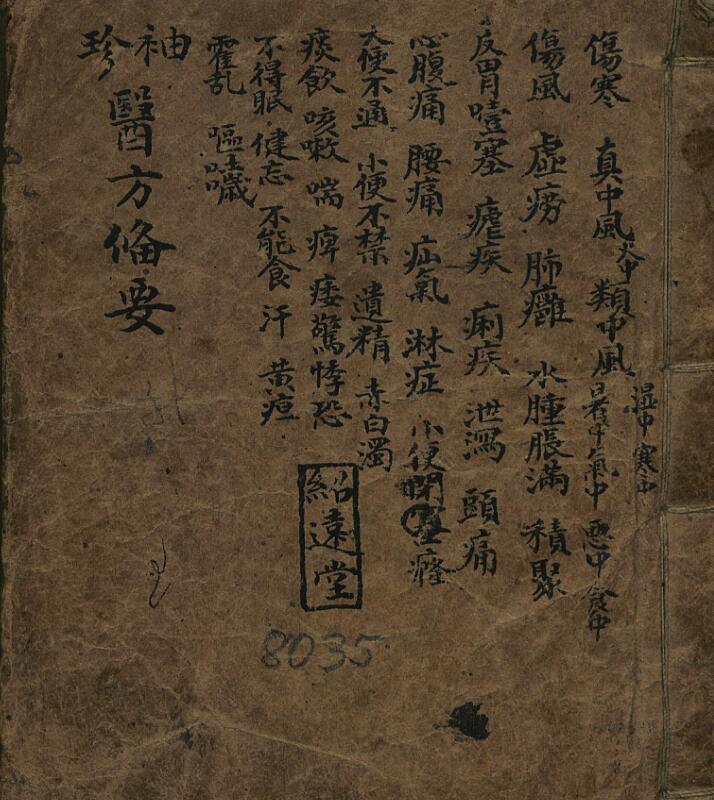 傷寒 真中風 火中 類中風 暑中 氣中 惡中 食中
濕中 寒中
傷風 虛癆 肺癰 水腫脹滿 積聚
反胃噎塞 瘧疾 痢疾 泄瀉 頭痛
心腹痛 腰痛 疝氣 淋症 小便閉 癃
大便不通 小便不禁 遺精 赤白濁
痰飲 咳嗽 喘 痺 痿 驚悸恐
不得眠 健忘 不能食 汗 黃疸
霍乱 嘔吐噦
袖
珍
醫方俻要
紹遠堂
8035